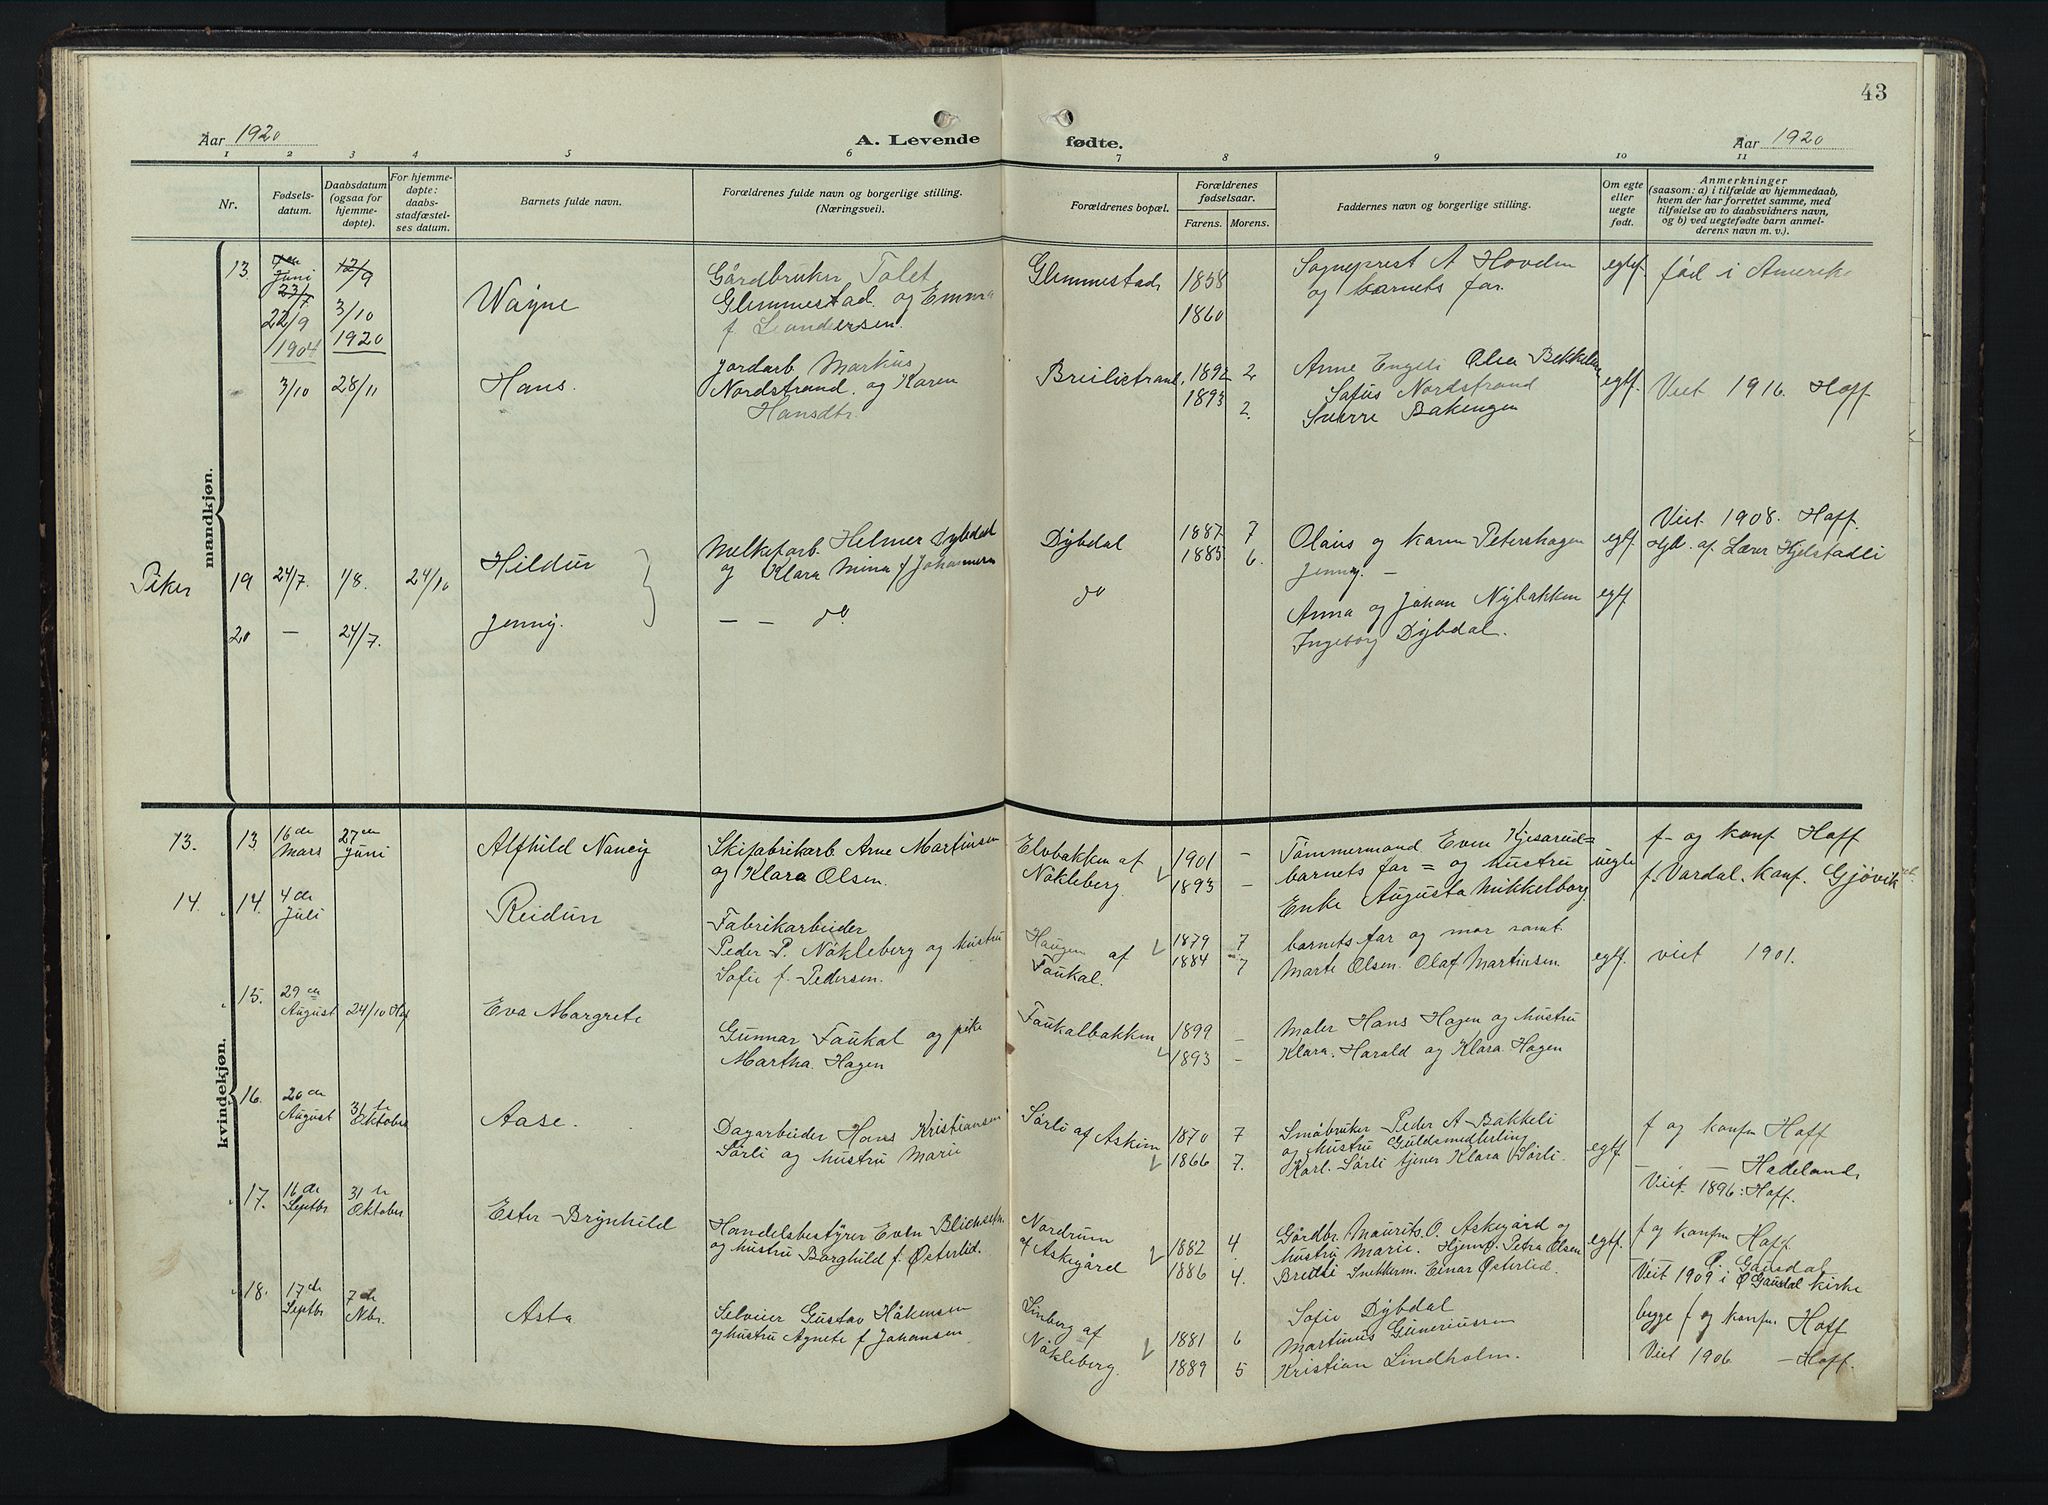 43
Aar 1920
A. Levende fødte.
Aar 1920
1 2 3 4 5 6 7 8 9 10 11
Nr.
Fødsels-
datum.
Daabsdatum
(ogsaa for
hjemme-
døpte).
For hjemme-
døpte:
daabs-
stadfæstel-
ses datum.
Barnets fulde navn.
Forældrenes fulde navn og borgerlige stilling.
(Næringsvei).
Forældrenes bopæl.
Forældrenes
fødselsaar.
Farens. Morens.
Faddernes navn og borgerlige stilling.
Om egte
eller
uegte
født.
Anmerkninger
(saasom: a) i tilfælde av hjemmedaab,
hvem der har forrettet samme, med
tilføielse av to daabsvidners navn,
og b) ved uegtefødte barn anmel-
derens navn m. v.).
mandkjøn.
13.
Juni
23/7
22/9
1904
12/9
3/10
1920
Wayne
Gårdbruker Tolef
Glemmestad og Emma
f. Leandersen.
Glemmestad
1858
1860
Sogneprest A Hovden
og barnets far.
egtf.
fød i Amerika
3/10
28/11
Hans.
Jordarb. Markus
Nordstrand og Karen
Hansdtr.
1892 2
1893 2.
Anne Engeli Olea Bekkelun
Sofus Nordstrand
Sverre Bakengen
egtf.
Viet 1916. Hoff.
Piker
19
24/7.
1/8.
24/10
Hildur
Melkeforb. Helmer Dybdal
og Klara Mina f Johannesen
Dybdal
1887 7
1885 6.
Olaus og Karen Petershagen
Jenny. —
egtf.
Viet. 1908. Hoff.
Hjd. af Lærer Kjelstadli
20
—
24/7.
Jenny.
— — do
do
Anna og Johan Nybakken
Ingeborg Dybdal.
egtf.
kvindekjøn.
13. 13
16 de
Mars
27 en
Juni
Alfhild Nancy
Skifabrikarb. Arne Martinsen
og Klara Olsen.
Elvbakken af
Nøkleberg
1901 —
1893 —
Tømmermand Even Kjesarud =
barnets far = og hustru
Enke Augusta Mikkelborg
uegte
f- og konf Hoff
f. Vardal. Konf. Gjøvik
14. 14.
4 de
Juli
Reidun
Fabrikarbeider
Peder P. Nøkleberg og hustru
Sofie f. Pedersen.
Haugen af
Faukal.
1879 7
1884 7
barnets far og mor samt
Marte Olsen. Olaf Martinsen
egtf.
viet 1901.
15.
29 en
August
24/10
Eva Margrete
Gunnar Faukal og pike
Martha Hagen
Faukalbakken
1899 —
1893 —
Maler Hans Hagen og hustru
Klara. Harald og Klara Hagen
16.
20 de
August
31 te
Oktober
Aase.
Dagarbeider Hans Kristiansen
Sørli og hustru Marie
Sørli af Askim
1870 7
1866 7.
Småbruker Peder A Bakkeli
og hustru Guldsmedlerling
Karl. Sørli tjener Klara Sørli.
egtf.
f og konfm Hoff
— — Hadeland
Viet. 1896: Hoff.
17.
16 de
Septbr
31 te
Oktober
Ester Brynhild
Handelsbestyrer Even Blichseth.
og hustru Borghild f. Østerlid.
Nordrum
af Askegård
1882 4.
1886 4.
Gårdbr. Maurits O. Askegård og
hustru Marie. Hjemv. Petra Olsen
Bredli Snekkerm. Einar Østerlid.
egtf.
f og konfm Hoff
Ø. Gausdal
Viet 1909 i Ø Gausdal kirke
18.
17 de
Septbr
7 de
Nbr.
Asta
Selveier Gustav Håkensen
og hustru Agnete f Johansen
Linberg af
Nøkleberg.
1881 6
1889 5
Sofie Dybdal
Martinus Guneriussen
Kristian Lindholm.
begge f og konfm Hoff
Viet 1906 — Hoff.